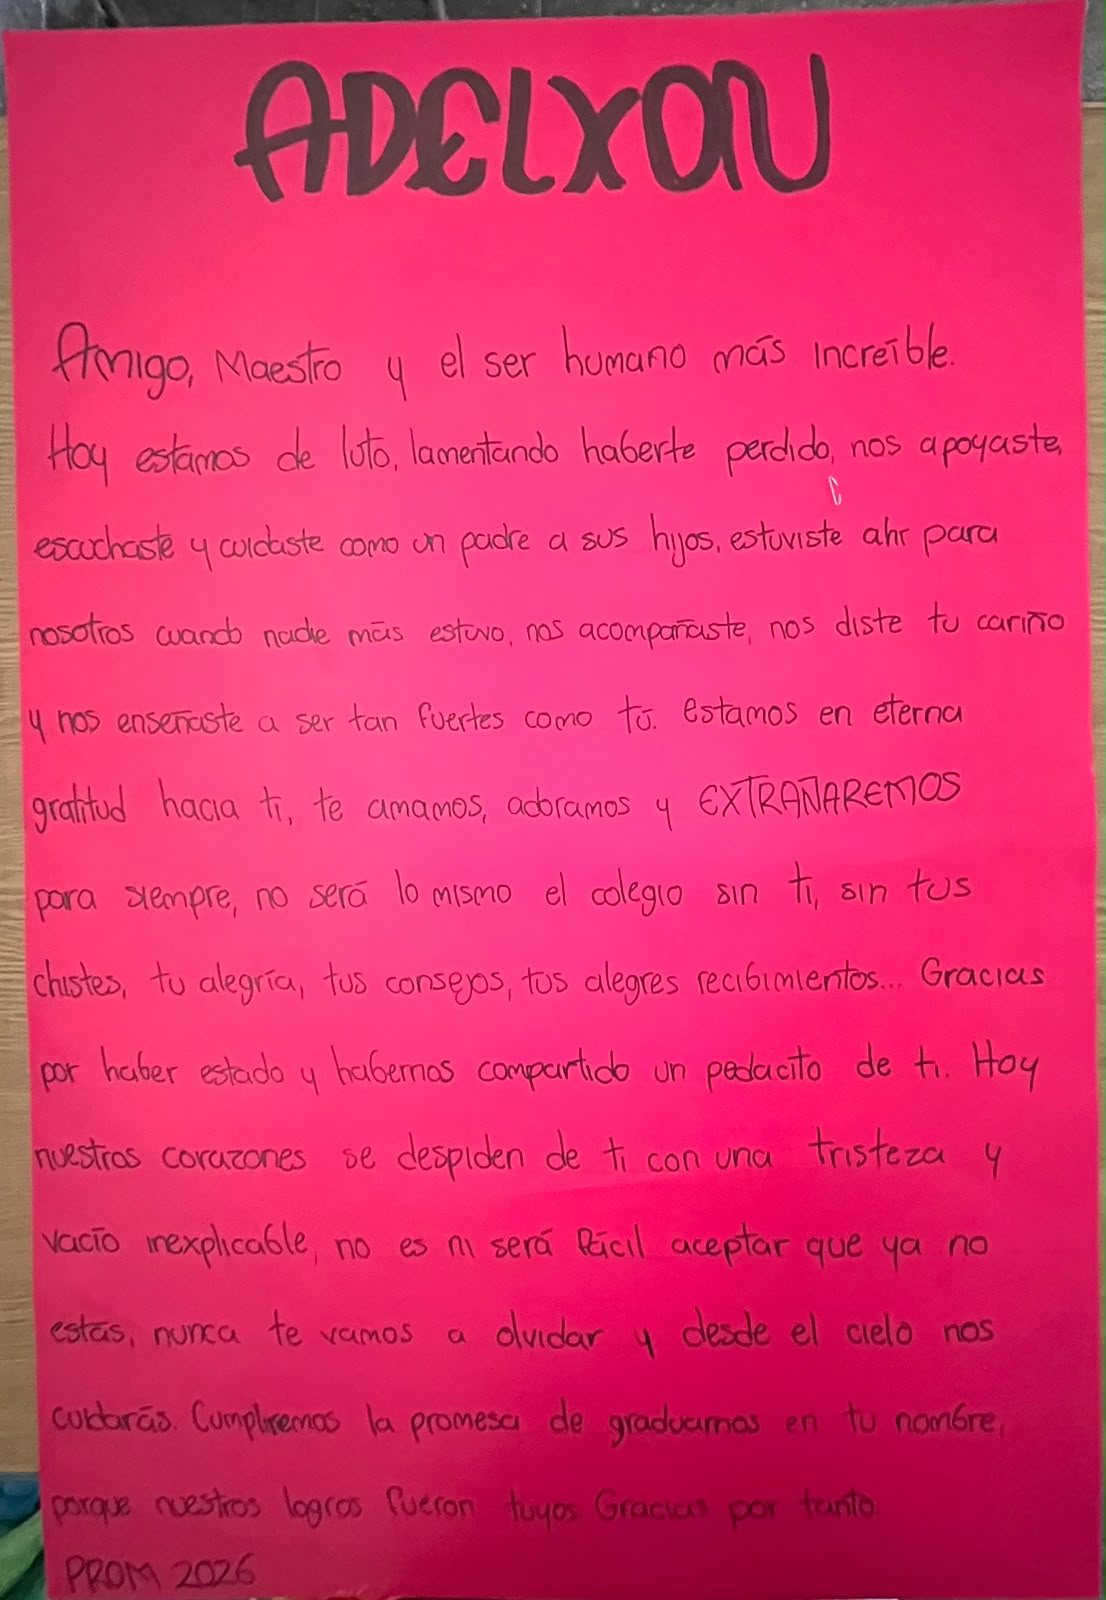 ADELXON
Amigo, Maestro y el ser humano más increíble.
Hoy estamos de luto, lamentando haberte perdido, nos apoyaste,
escuchaste y cuidaste como un padre a sus hijos, estuviste ahí para
nosotros cuando nadie más estuvo, nos acompañaste, nos diste tu cariño
y nos enseñaste a ser tan fuertes como tú. estamos en eterna
gratitud hacia ti, te amamos, adoramos y EXTRAÑAREMOS
para siempre, no será lo mismo el colegio sin ti, sin tus
chistes, tu alegría, tus consejos, tus alegres recibimientos... Gracias
por haber estado y habernos compartido un pedacito de ti. Hoy
nuestros corazones se despiden de ti con una tristeza y
vacío inexplicable, no es ni será fácil aceptar que ya no
estás, nunca te vamos a olvidar y desde el cielo nos
cuidarás. Cumpliremos la promesa de graduarnos en tu nombre,
porque nuestros logros fueron tuyos. Gracias por tanto.
PROM 2026